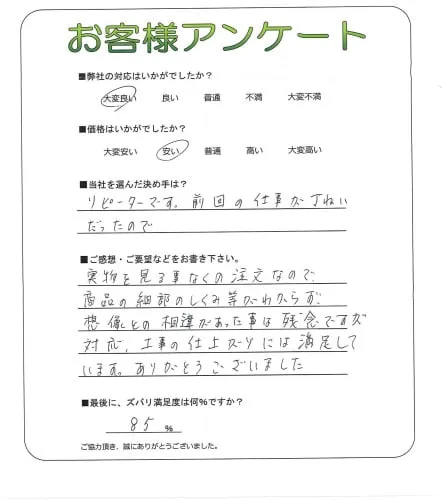 お客様アンケート
■弊社の対応はいかがでしたか？
大変良い 良い 普通 不満 大変不満
■価格はいかがでしたか？
大変安い 安い 普通 高い 大変高い
■当社を選んだ決め手は？
リピーターです。前回の仕事が丁ねい
だったので
■ご感想・ご要望などをお書き下さい。
実物を見る事なくの注文なので、
商品の細部のしくみ等がわからず、
想像との相違があった事は残念ですが
対応、工事の仕上がりには満足して
います。ありがとうございました
■最後に、ズバリ満足度は何%ですか？
85 %
ご協力頂き、誠にありがとうございました。